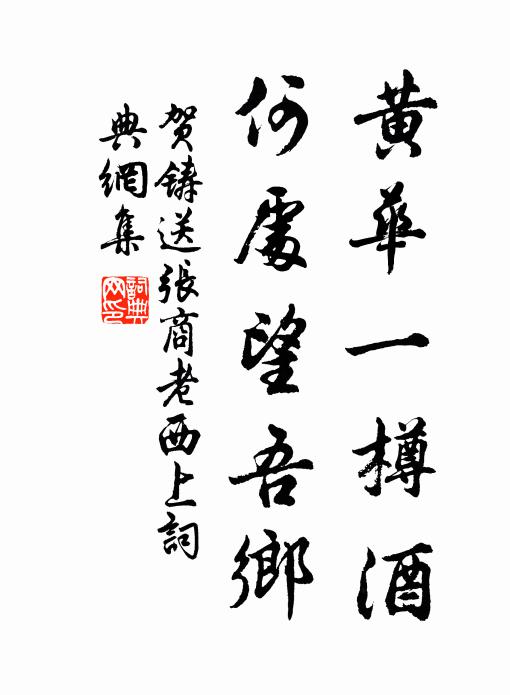 黄華一樽酒
何處望吾鄉
贺鑄送張商老西上詞
典網集
詞典
网印